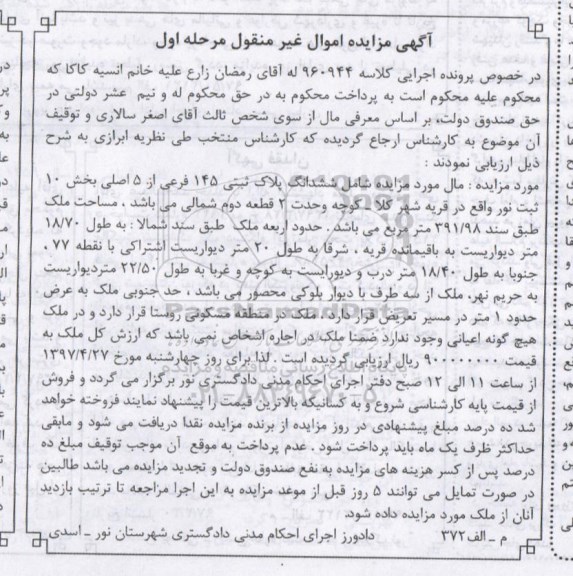 آگهی مزایده اموال غیر منقول مرحله اول
در خصوص پرونده اجرایی کلاسه ۹۶۰۹۴۴ له آقای رمضان زارع علیه خانم انسیه کاکا که
محکوم علیه محکوم است به پرداخت محکوم به در حق محکوم له و نیم عشر دولتی در
حق صندوق دولت، بر اساس معرفی مال از سوی شخص ثالث آقای اصغر سالاری و توقیف
آن موضوع به کارشناس ارجاع گردیده که کارشناس منتخب طی نظریه ابرازی به شرح
ذیل ارزیابی نمودند :
مورد مزایده : مال مورد مزایده شامل ششدانگ پلاک ثبتی ۱۴۵ فرعی از ۵ اصلی بخش ۱۰
ثبت نور واقع در قریه شهر کلا - کوچه وحدت ۲ قطعه دوم شمالی می باشد ، مساحت ملک
طبق سند ۳۹۱/۹۸ متر مربع می باشد . حدود اربعه ملک طبق سند شمالا : به طول ۱۸/۷۰
متر دیواریست به باقیمانده قریه ، شرقا به طول ۲۰ متر دیواریست اشتراکی با نقطه ۷۷ ،
جنوبا به طول ۱۸/۴۰ متر درب و دیورایست به کوچه و غربا به طول ۲۲/۵۰ متردیواریست
به حریم نهر، ملک از سه طرف با دیوار بلوکی محصور می باشد ، حد جنوبی ملک به عرض
حدود ۱ متر در مسیر تعریض قرار دارد، ملک در منطقه مسکونی روستا قرار دارد و در ملک
هیچ گونه اعیانی وجود ندارد ضمنا ملک در اجاره اشخاص نمی باشد که ارزش کل ملک به
قیمت ۹۰۰۰۰۰۰۰۰ ریال ارزیابی گردیده است . لذا برای روز چهارشنبه مورخ ۱۳۹۷/۴/۲۷
از ساعت ۱۱ الی ۱۲ صبح دفتر اجرای احکام مدنی دادگستری نور برگزار می گردد و فروش
از قیمت پایه کارشناسی شروع و به کسانیکه بالاترین قیمت را پیشنهاد نمایند فروخته خواهد
شد ده درصد مبلغ پیشنهادی در روز مزایده از برنده مزایده نقدا دریافت می شود و مابقی
حداکثر ظرف یک ماه باید پرداخت شود . عدم پرداخت به موقع آن موجب توقیف مبلغ ده
درصد پس از کسر هزینه های مزایده به نفع صندوق دولت و تجدید مزایده می باشد طالبین
در صورت تمایل می توانند ۵ روز قبل از موعد مزایده به این اجرا مراجعه تا ترتیب بازدید
آنان از ملک مورد مزایده داده شود.
م ـ الف ۳۷۲ دادورز اجرای احکام مدنی دادگستری شهرستان نور ـ اسدی